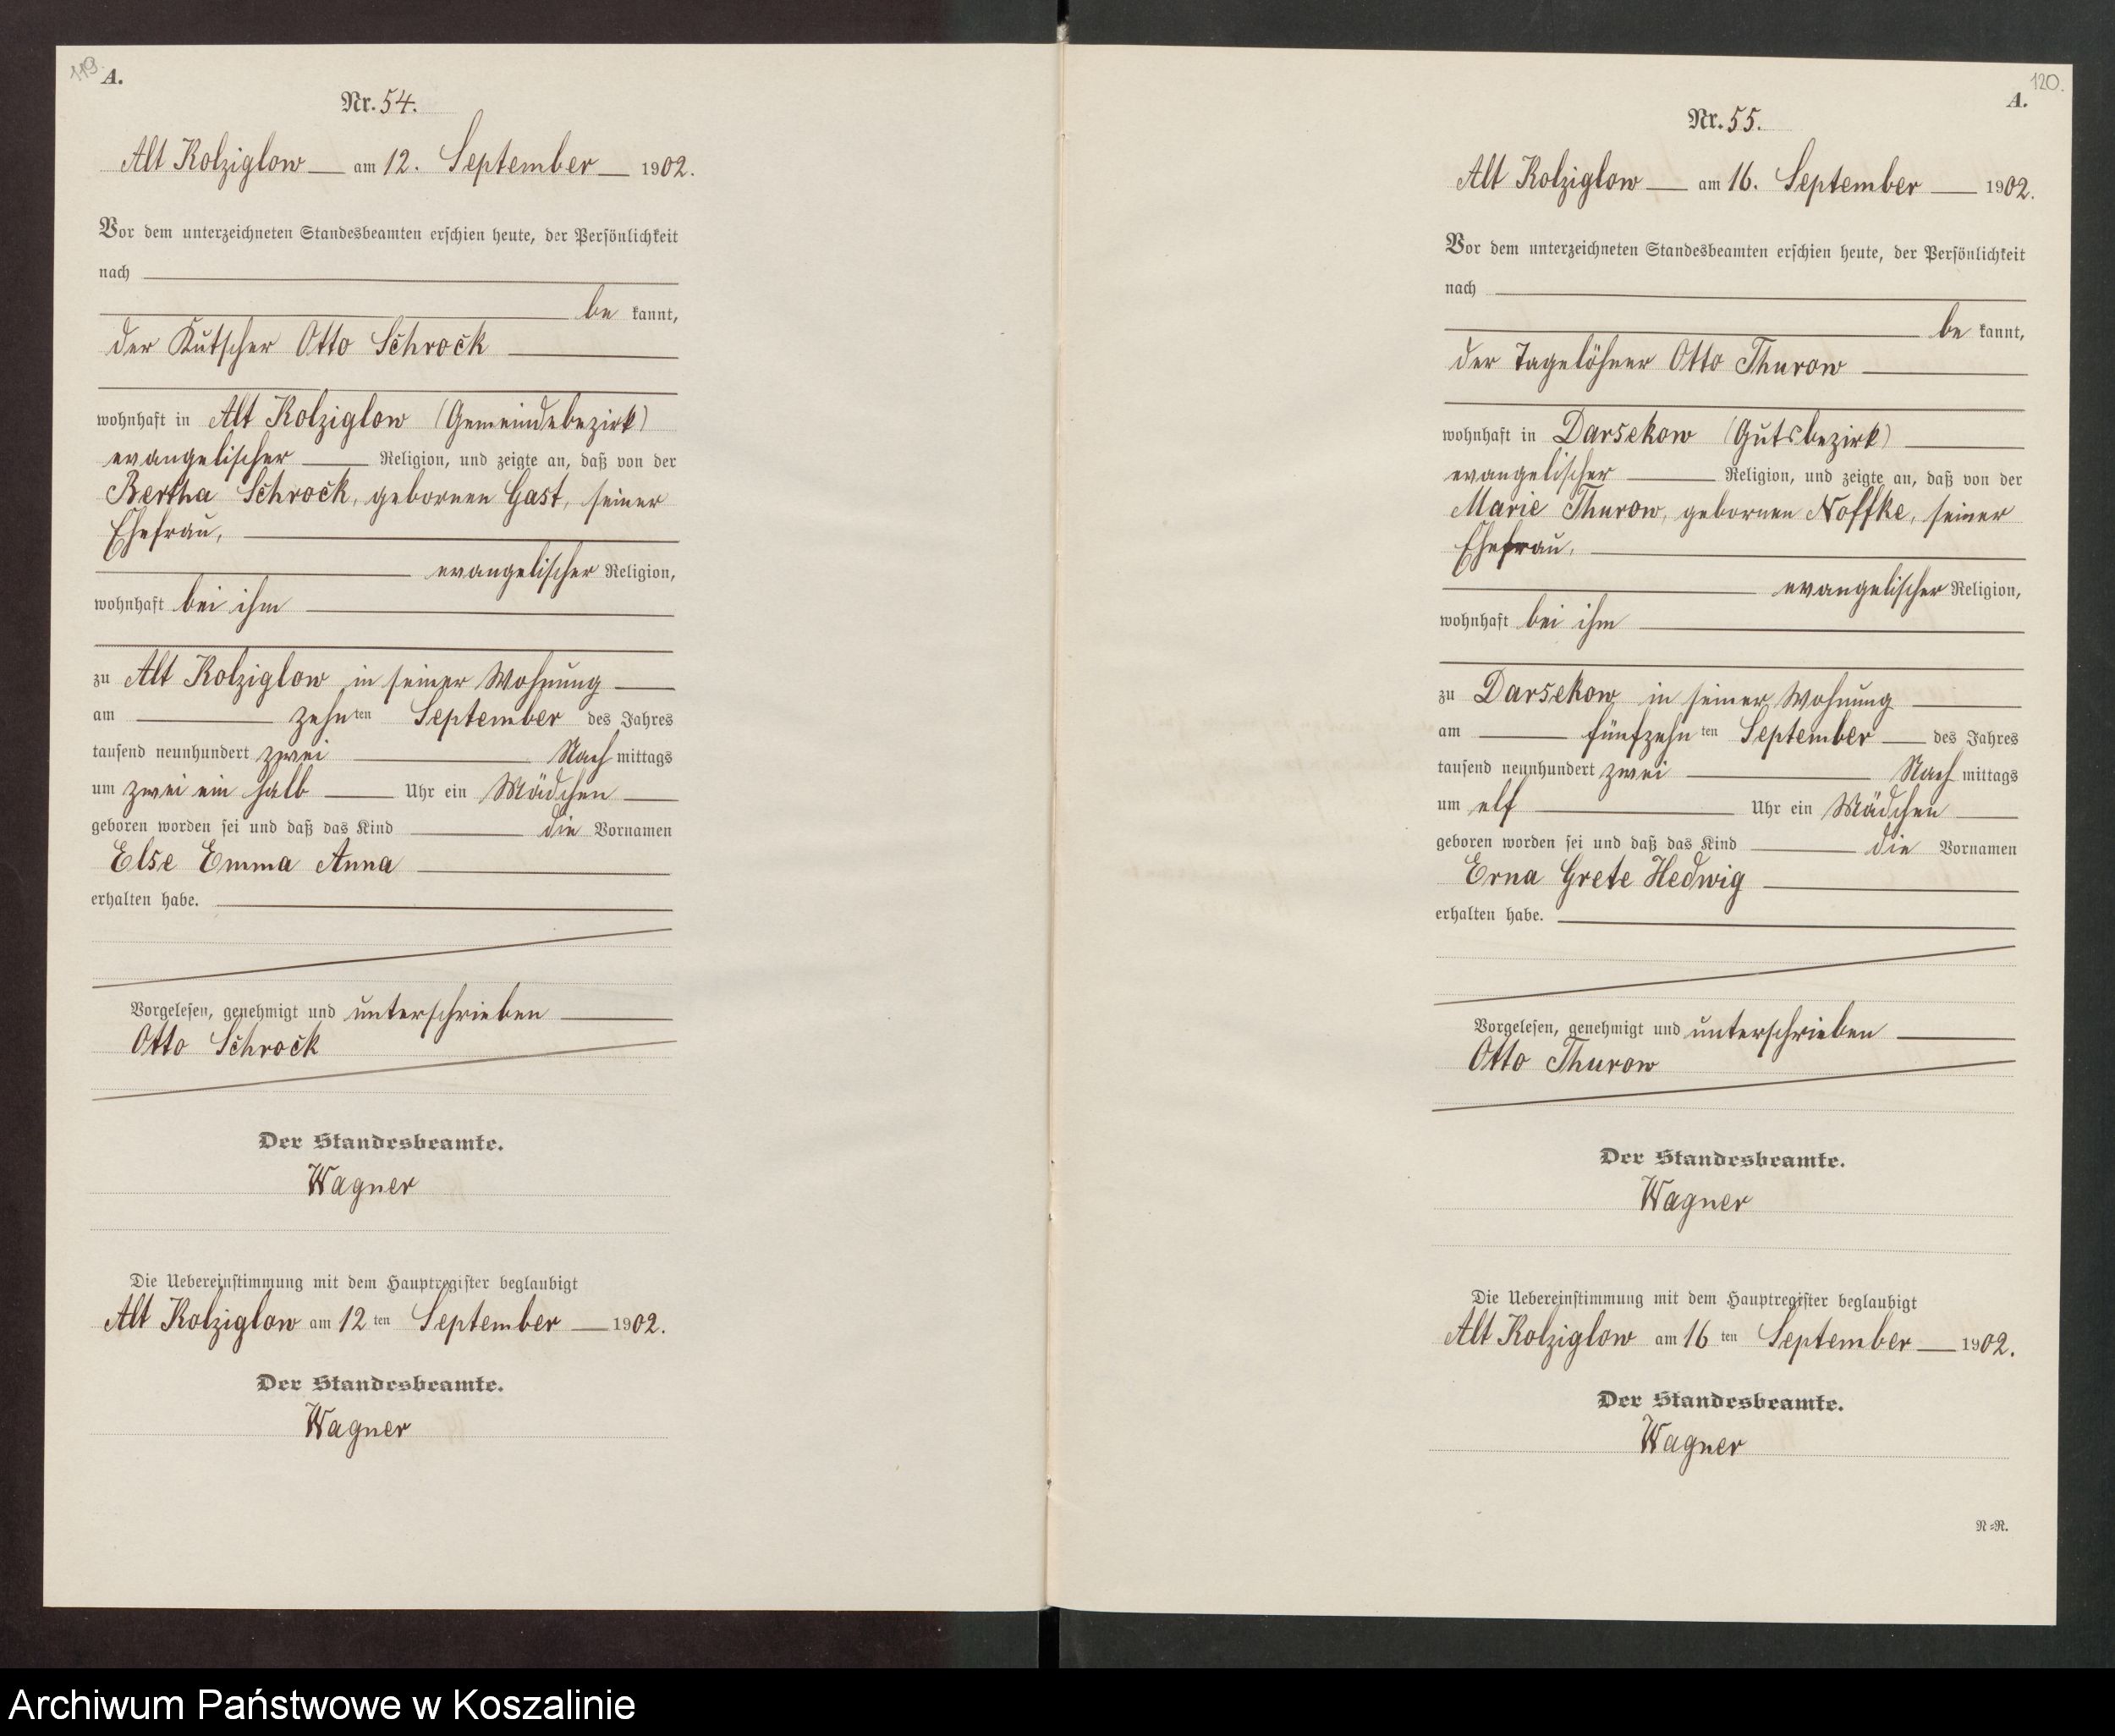 119.
A.
Nr. 54.
Alt Kolziglow am 12. September 1902.
Vor dem unterzeichneten Standesbeamten erschien heute, der Persönlichkeit
nach
be kannt,
der Kutscher Otto Schrock
wohnhaft in Alt Kolziglow (Gemeindebezirk)
evangelischer Religion, und zeigte an, daß von der
Bertha Schrock, gebornen Gast, seiner
Ehefrau,
evangelischer Religion,
wohnhaft bei ihm
zu Alt Kolziglow in seiner Wohnung
am zehnten September des Jahres
tausend neunhundert zwei Nachmittags
um zwei ein halb Uhr ein Mädchen
geboren worden sei und daß das Kind die Vornamen
Else Emma Anna
erhalten habe.
Vorgelesen, genehmigt und unterschrieben
Otto Schrock
Der Standesbeamte.
Wagner
Die Uebereinstimmung mit dem Hauptregister beglaubigt
Alt Kolziglow am 12 ten September 1902.
Der Standesbeamte.
Wagner
120.
A.
Nr. 55.
Alt Kolziglow am 16. September 1902.
Vor dem unterzeichneten Standesbeamten erschien heute, der Persönlichkeit
nach
be kannt,
der Tagelöhner Otto Thurow
wohnhaft in Darsekow (Gutsbezirk)
evangelischer Religion, und zeigte an, daß von der
Marie Thurow, gebornen Noffke, seiner
Ehefrau,
evangelischer Religion,
wohnhaft bei ihm
zu Darsekow in seiner Wohnung
am fünfzehn ten September des Jahres
tausend neunhundert zwei Nach mittags
um elf Uhr ein Mädchen
geboren worden sei und daß das Kind die Vornamen
Erna Grete Hedwig
erhalten habe.
Vorgelesen, genehmigt und unterschrieben
Otto Thurow
Der Standesbeamte.
Wagner
Die Uebereinstimmung mit dem Hauptregister beglaubigt
Alt Kolziglow am 16 ten September 1902.
Der Standesbeamte.
Wagner
N=R.
Archiwum Państwowe w Koszalinie